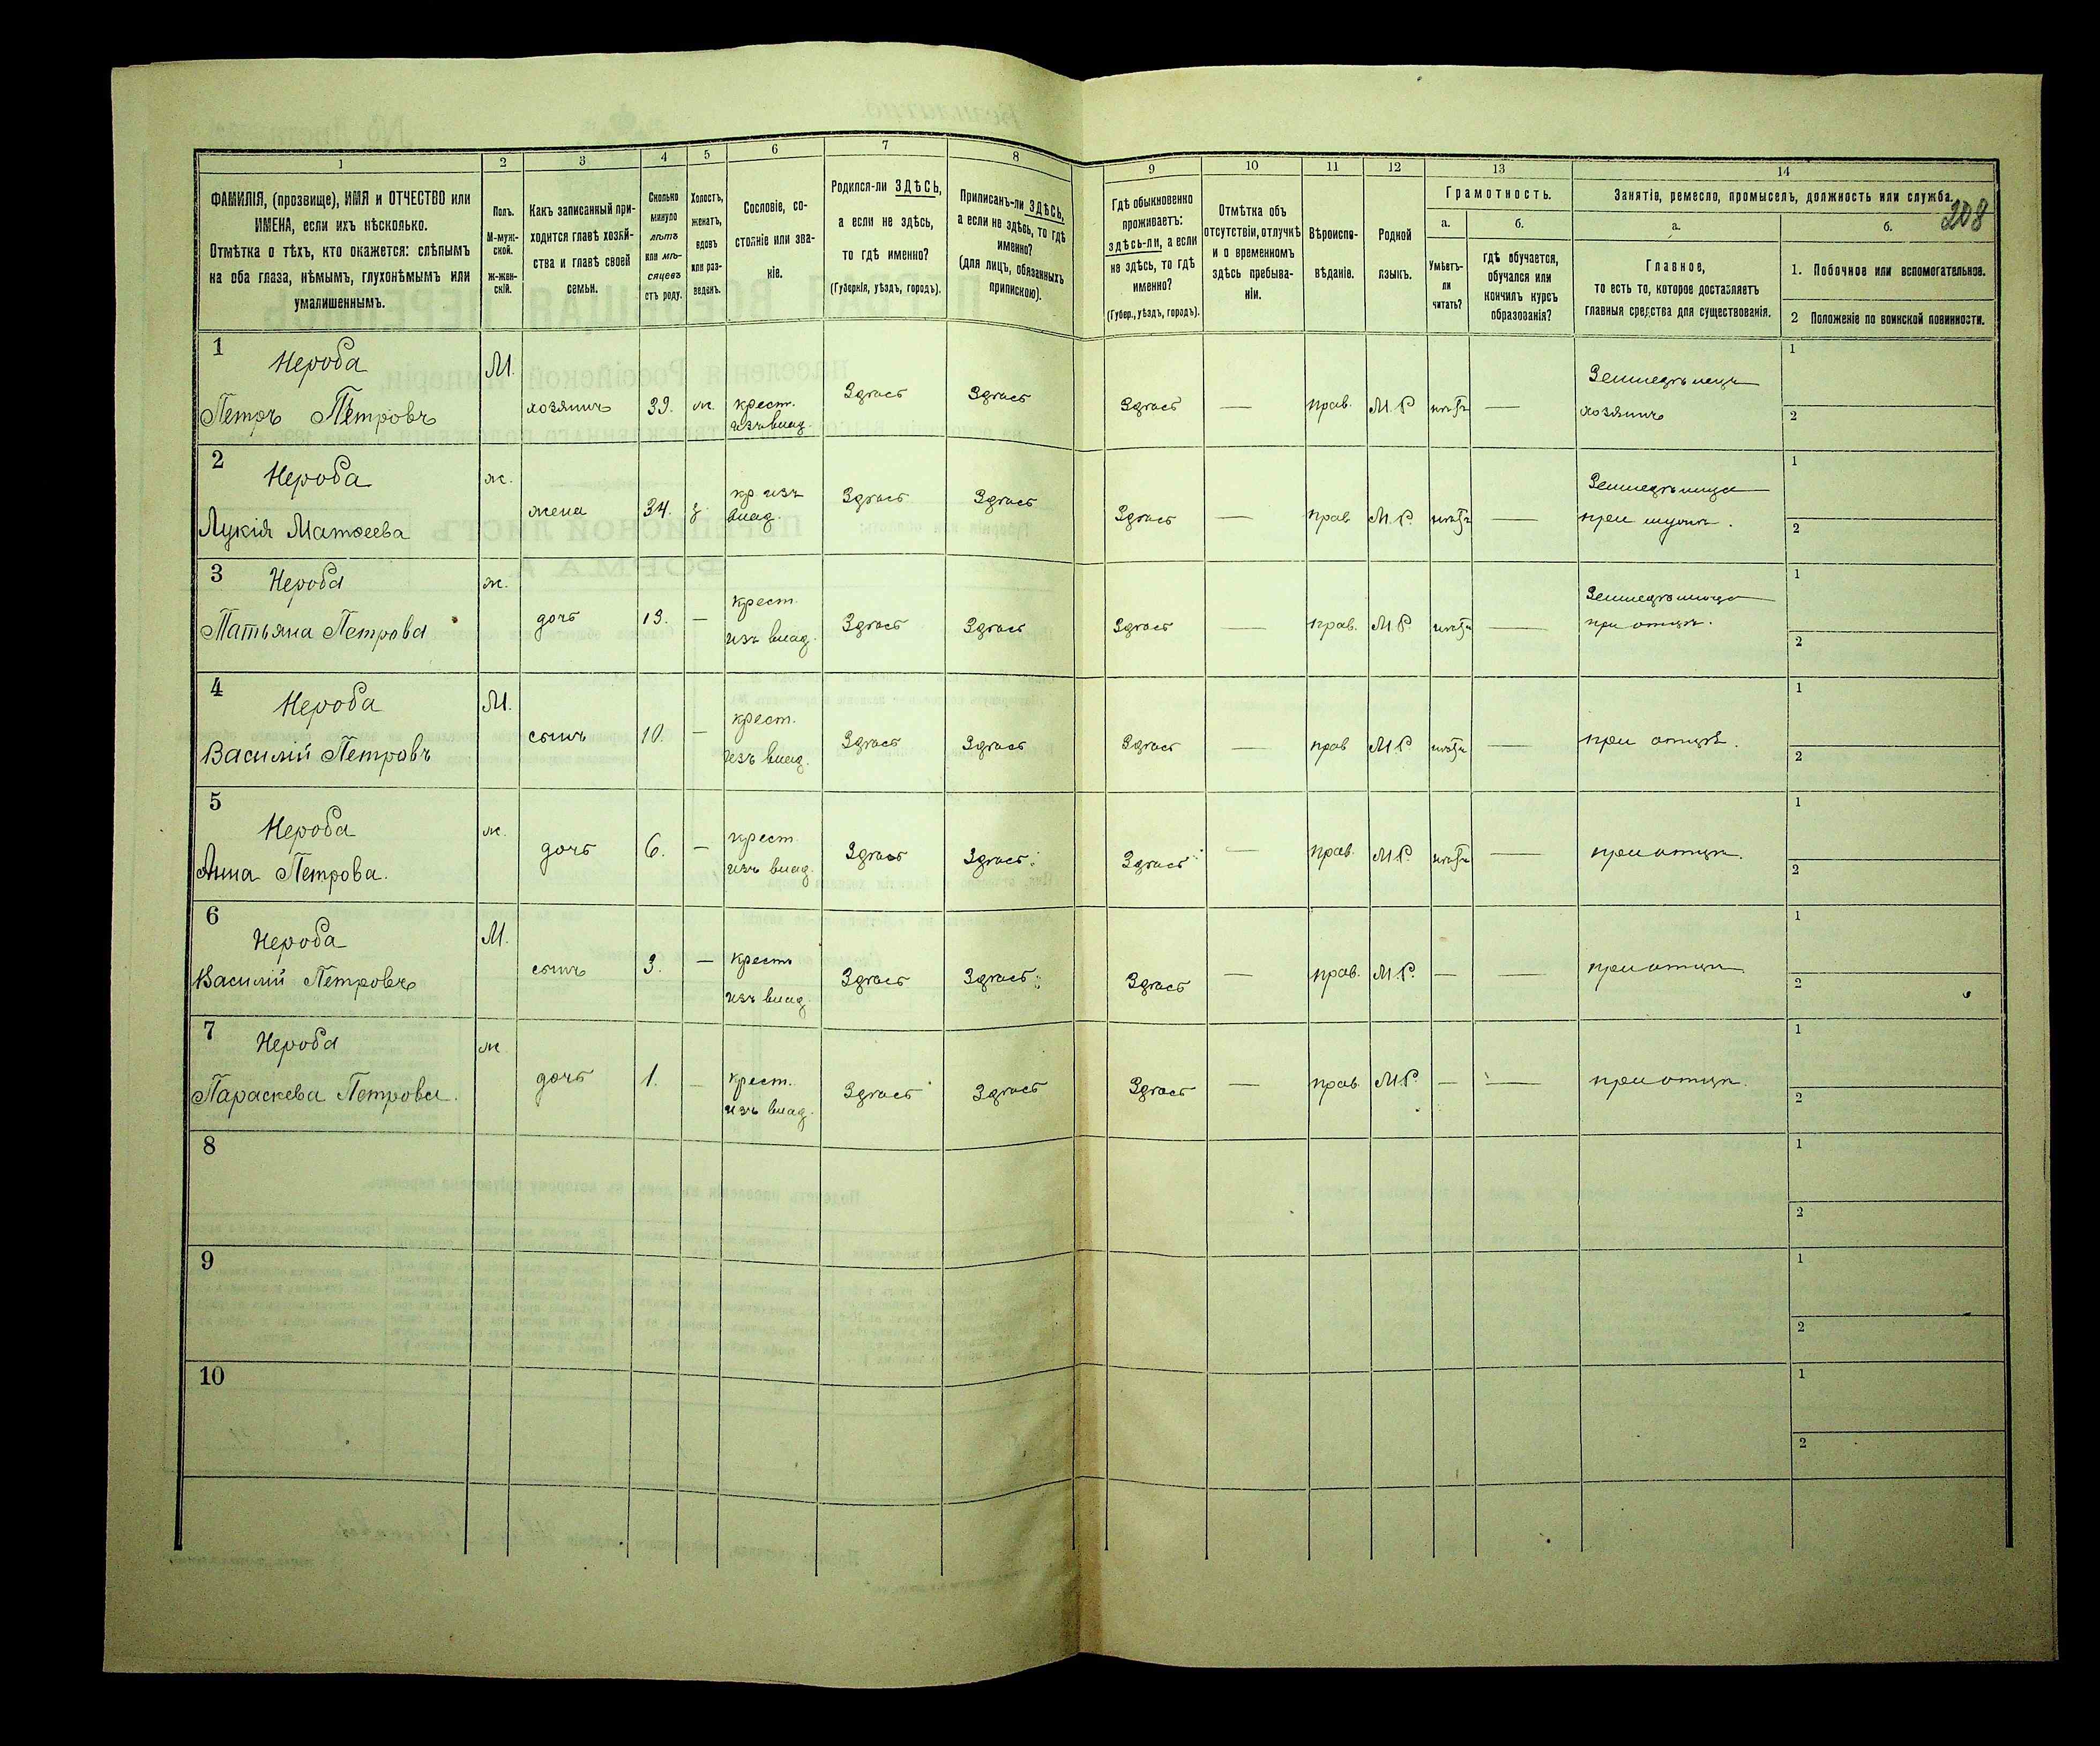 1
2
3
4
5
6
7
8
9
10
11
12
13
14
ФАМИЛІЯ, (прозвище), ИМЯ и ОТЧЕСТВО или
ИМЕНА, если ихъ нѣсколько.
Отмѣтка о тѣхъ, кто окажется: слѣпымъ
на оба глаза, нѣмымъ, глухонѣмымъ или
умалишеннымъ.
Полъ.
М-муж-
ской.
Ж-жен-
скій.
Какъ записанный при-
ходится главѣ хозяй-
ства и главѣ своей
семьи.
Сколько
минуло
лѣтъ
или мѣ-
сяцевъ
отъ роду.
Холостъ,
женатъ,
вдовъ
или раз-
веденъ.
Сословіе, со-
стояніе или зва-
ніе.
Родился-ли ЗДѢСЬ,
а если не здѣсь,
то гдѣ именно?
(Губернія, уѣздъ, городъ).
Приписанъ-ли ЗДѢСЬ,
а если не здѣсь, то гдѣ
именно?
(для лицъ, обязанныхъ
припискою).
Гдѣ обыкновенно
проживаетъ:
здѣсь-ли, а если
не здѣсь, то гдѣ
именно?
(Губер., уѣздъ, городъ).
Отмѣтка объ
отсутствіи, отлучкѣ
и о временномъ
здѣсь пребыва-
ніи.
Вѣроиспо-
вѣданіе.
Родной
языкъ.
Грамотность.
а.
Умѣетъ-
ли
читать?
б.
гдѣ обучается,
обучался или
кончилъ курсъ
образованія?
Занятія, ремесло, промыселъ, должность или служба.
208
а.
Главное,
то есть то, которое доставляетъ
главныя средства для существованія.
б.
1. Побочное или вспомогательное.
2 Положеніе по воинской повинности.
1
Нероба
Петръ Петровъ
М.
хозяинъ
39.
ж.
крест.
изъ влад.
Здѣсь
Здѣсь
Здѣсь
—
прав.
М.Р.
нѣтъ
—
Земледѣлецъ
хозяинъ
1
2
2
Нероба
Лукія Матѳеева
ж.
жена
34.
з.
кр. изъ
влад.
Здѣсь
Здѣсь
Здѣсь
—
прав
М.Р.
нѣтъ
—
Земледѣлица
при мужѣ.
1
2
3
Нероба
Татьяна Петрова
ж.
дочь
13.
—
крест.
изъ влад.
Здѣсь
Здѣсь
Здѣсь
—
прав.
М.Р.
нѣтъ
—
Земледѣлица
при отцѣ.
1
2
4
Нероба
Василій Петровъ
М.
сынъ
10.
—
крест.
изъ влад.
Здѣсь
Здѣсь
Здѣсь
—
прав
М.Р.
нѣтъ
—
при отцѣ.
1
2
5
Нероба
Анна Петрова.
ж.
дочь
6.
—
крест
изъ влад.
Здѣсь
Здѣсь
Здѣсь
—
прав.
М.Р.
нѣтъ
—
при отцѣ.
1
2
6
Нероба
Василій Петровъ
М.
сынъ
3.
—
крест
изъ влад.
Здѣсь
Здѣсь
Здѣсь
—
прав.
М.Р.
—
—
при отцѣ.
1
2
7
Нероба
Параскева Петрова.
ж
дочь
1.
—
крест.
изъ влад.
Здѣсь
Здѣсь
Здѣсь
—
прав.
М.Р.
—
—
при отцѣ.
1
2
8
1
2
9
1
2
10
1
2